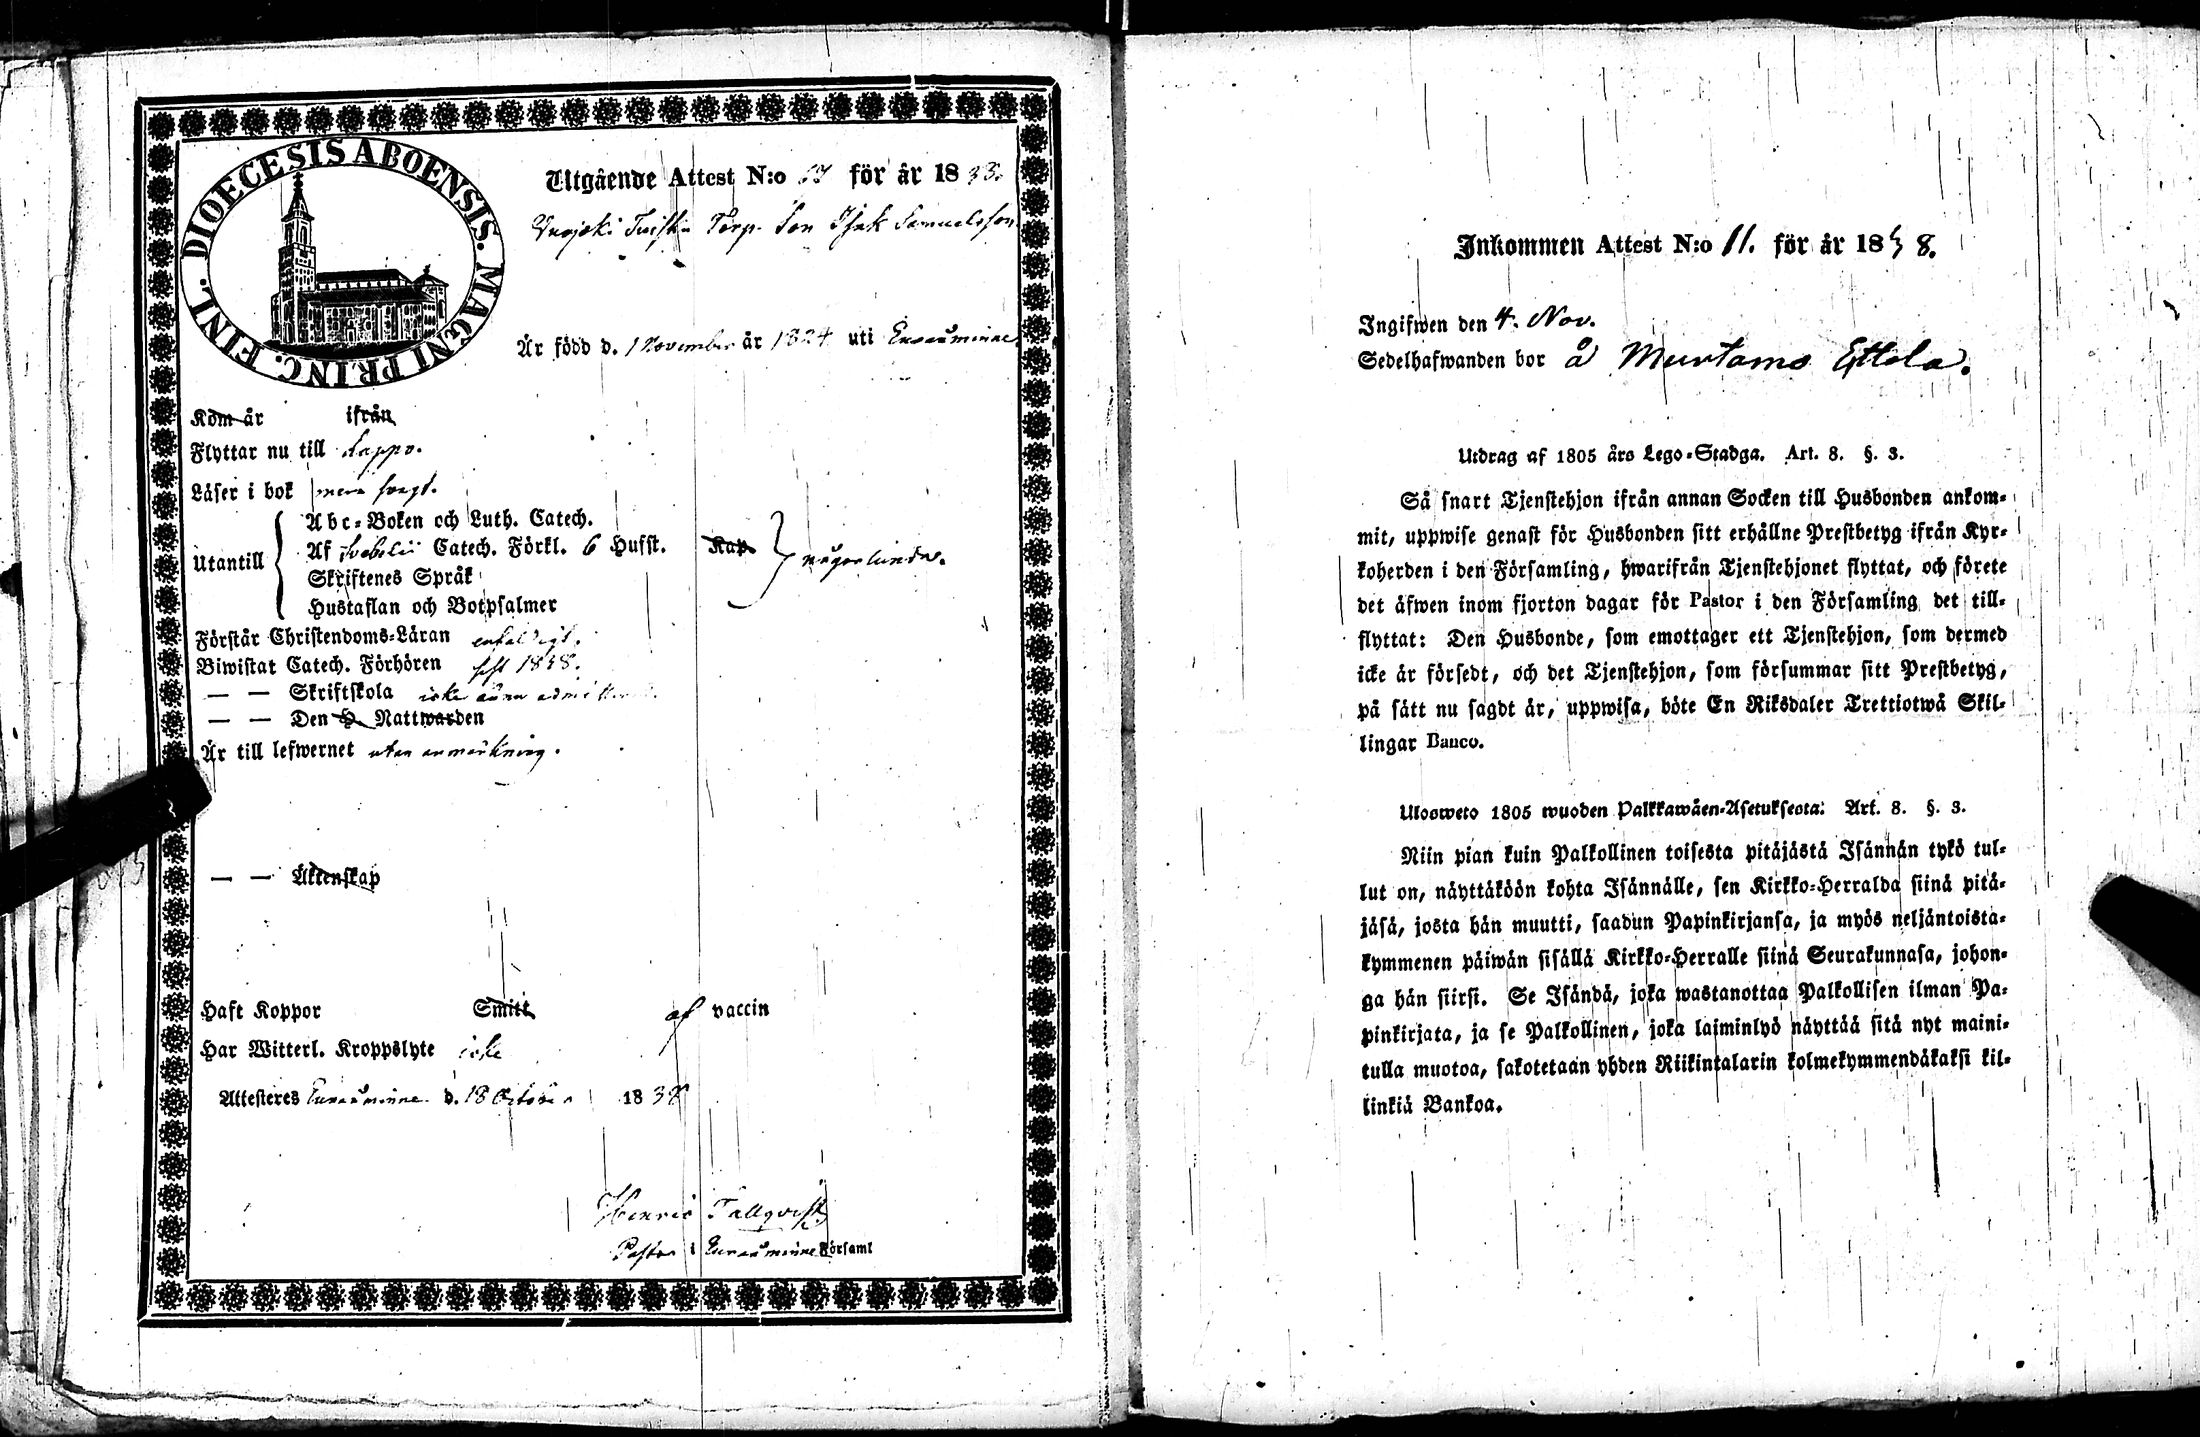 DIOECESIS ABOENSIS. MAGNI PRINC. FINL.
Utgående Attest N:o för år 1838.
Vuojoki Torp. Son Isak Samuelsson
Är född d. 1 November år 1824 uti Euraåminne
Kom år ifrån
Flyttar nu till Lappo.
Läser i bok svagt.
Utantill
Abc-Boken och Luth. Catech.
Af Svebelii Catech. Förkl. 6 Hufst. Kap.
Skriftenes Språk
Hustaflan och Botpsalmer
någorlunda.
Förstår Christendoms-Läran enfaldigt.
Biwistat Catech. Förhören sist 1838.
— — Skriftskola icke ännu
— — Den H. Nattwarden
Är till lefwernet utan anmärkning.
— — Äktenskap
Haft Koppor Smitt af vaccin
Har Witterl. Kroppslyte icke
Attesteras Euraåminne d. 18 October 1838
Henric Tallqvist
Pastor i Euraåminne Församl
Inkommen Attest N:o 11. för år 1838.
Ingifwen den 4. Nov.
Sedelhafwanden bor å Murtamo Ettola.
Utdrag af 1805 års Lego-Stadga. Art. 8. §. 3.
Så snart Tjenstehjon ifrån annan Socken till Husbonden ankom-
mit, uppwise genast för Husbonden sitt erhållne Prestbetyg ifrån Kyr-
koherden i den Församling, hwarifrån Tjenstehjonet flyttat, och förete
det äfwen inom fjorton dagar för Pastor i den Församling det till-
flyttat: Den Husbonde, som emottager ett Tjenstehjon, som dermed
icke är försedt, och det Tjenstehjon, som försummar sitt Prestbetyg,
på sätt nu sagdt är, uppwisa, böte En Riksdaler Trettiotwå Skil-
lingar Banco.
Ulosweto 1805 wuoden Palkkawäen-Asetuksesta: Art. 8. §. 3.
Niin pian kuin Palkollinen toisesta pitäjästä Isännän tykö tul-
lut on, näyttäköön kohta Isännälle, sen Kirkko-Herralda siinä pitä-
jäsä, josta hän muutti, saadun Papinkirjansa, ja myös neljäntoista-
kymmenen päiwän sisällä Kirkko-Herralle siinä Seurakunnasa, johon-
ga hän siirsi. Se Isändä, joka wastanottaa Palkollisen ilman Pa-
pinkirjata, ja se Palkollinen, joka laiminlyö näyttää sitä nyt maini-
tulla muotoa, sakotetaan yhden Riikintalarin kolmekymmendäkaksi kil-
linkiä Bankoa.